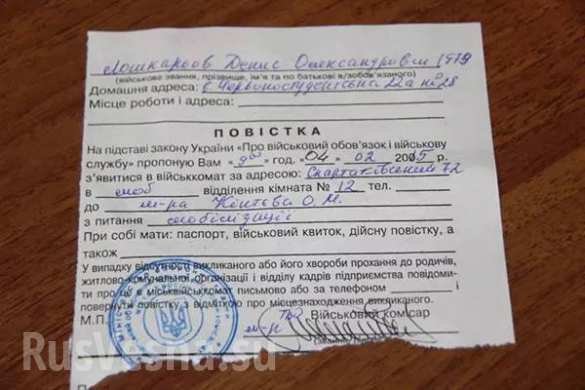 Лошкарьов Денис Олександрович 1979
(військове звання, прізвище, ім'я та по батькові в/зобов'язаного)
Домашня адреса: с. Червоностудентська 22а
Місце роботи і адреса:
ПОВІСТКА
На підставі закону України «Про військовий обов'язок і військову
службу» пропоную Вам « 900 » год. 04 02 2005 р.
з'явитися в військкомат за адресою: Спартаківський 72
в моб відділення кімната № 12 тел.
до м-ра О.М.
з питання мобілізації
При собі мати: паспорт, військовий квиток, дійсну повістку, а
також
У випадку відсутності викликаного або його хвороби прохання до родичів,
житлово-комунальної організації і відділу кадрів підприємства повідоми-
ти про це міськвійськкомат письмово або за телефоном і
повернути повістку з відміткою про місцезнаходження викликаного.
М.П. Військовий комісар
м-р
RusVesna.su